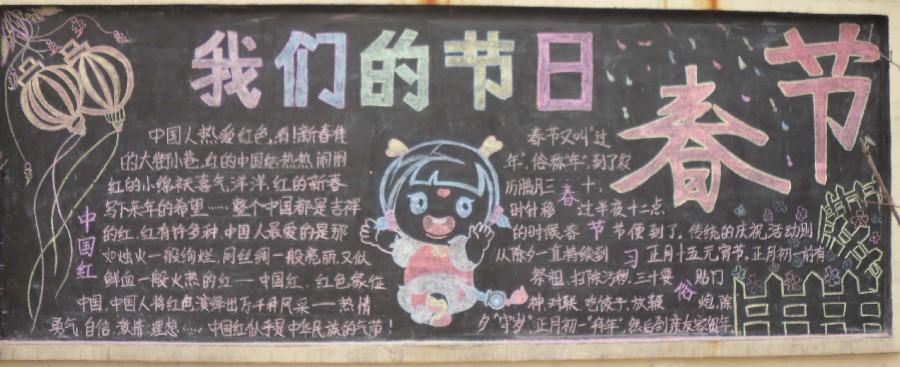 我们的节日
春节
中国红
中国人热爱红色,看!新春佳
的大街小巷,红的中国结热热闹闹
红的小绵袄喜气洋洋,红的新春
写下来年的希望……整个中国都是吉祥
的红,红有许多种,中国人最爱的是那
如烛火一般绚烂,同丝绸一般亮丽,又似
鲜血一般火热的红——中国红,红色象征
中国,中国人将红色演绎出万千种风采——热情
勇气,自信,激情,理想……中国红似乎是中华民族的气节!
春节习俗
春节又叫"过
年",俗称"年",到了农
历腊月三十,
时针移过半夜十二点
的时候春节便到了,传统的庆祝活动则
从除夕一直持续到正月十五元宵节,正月初一前有
祭祖,扫除污秽,三十要贴门
神,对联,吃饺子,放鞭炮,除
夕"守岁",正月初一"拜年",然后到亲友家贺年